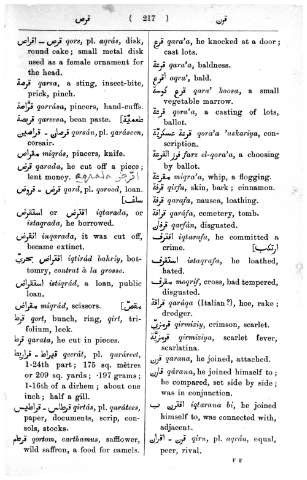 قرص ( 217 ) قرن
قرص - اقراص qorz, pl. aqrás, disk,
round cake; small metal disk
used as a female ornament for
the head.
قرصة qarsa, a sting, insect-bite,
prick, pinch.
قرّاصة qorrása, pincers, hand-cuffs.
qarasea, bean paste.
قرصان - قراصين qorsán, pl. qaráseen,
corsair.
مقراص miqrás, pincers, knife.
قرض qarada, he cut off a piece;
lent money.
قرض - قروض qard, pl. qorood, loan.
اقترض or استقرض iqtarada, or
istaqrada, he borrowed.
انقرض inqarada, it was cut off,
became extinct.
اقتراض بحري iqtirád bahriy, bot-
tomry, contrat à la grosse.
استقراض istiqrád, a loan, public
loan.
مقراض miqrád, scissors.
قرط qort, bunch, ring, qirt, tri-
folium, leek.
قرط qarata, he cut in pieces.
قيراط - قراريط qeerát, pl. qaráreet,
1-24th part; 175 sq. mètres
or 209 sq. yards; ·197 grams;
1-16th of a dirhem; about one
inch; half a gill.
قرطاس - قراطيس qirtás, pl. qarátees,
paper, documents, scrip, con-
sols, stocks.
قرطم qortom, carthamus, safflower,
wild saffron, a food for camels.
قرع qara'a, he knocked at a door;
cast lots.
قرعة qara'a, baldness.
اقرع aqra', bald.
قرع كوسة qara' koosa, a small
vegetable marrow.
قرعة qora'a, a casting of lots,
ballot.
قرعة عسكرية qora'a 'askariya, con-
scription.
فرز القرعة farz el-qora'a, a choosing
by ballot.
مقرعة miqra'a, whip, a flogging.
قرفة qirfa, skin, bark; cinnamon.
قرف qarafa, nausea, loathing.
قرافة qaráfa, cemetery, tomb.
قرفان qarfán, disgusted.
اقترف iqtarafa, he committed a
crime. [ارتكب
استقرف istaqrafa, he loathed,
hated.
مقرف moqrif, cross, bad tempered,
disgusted.
قراقة qaráqa (Italian?), hoe, rake;
- dredger.
قرمزي qirmiziy, crimson, scarlet.
قرمزية qirmiziya, scarlet fever,
scarlatina.
قرن qarana, he joined, attached.
قارن qárana, he joined himself to;
he compared, set side by side;
was in conjunction.
اقترن ب iqtarana bi, he joined
himself to, was connected with,
adjacent.
قرن - اقران qirn, pl. aqrán, equal,
peer, rival.
F F